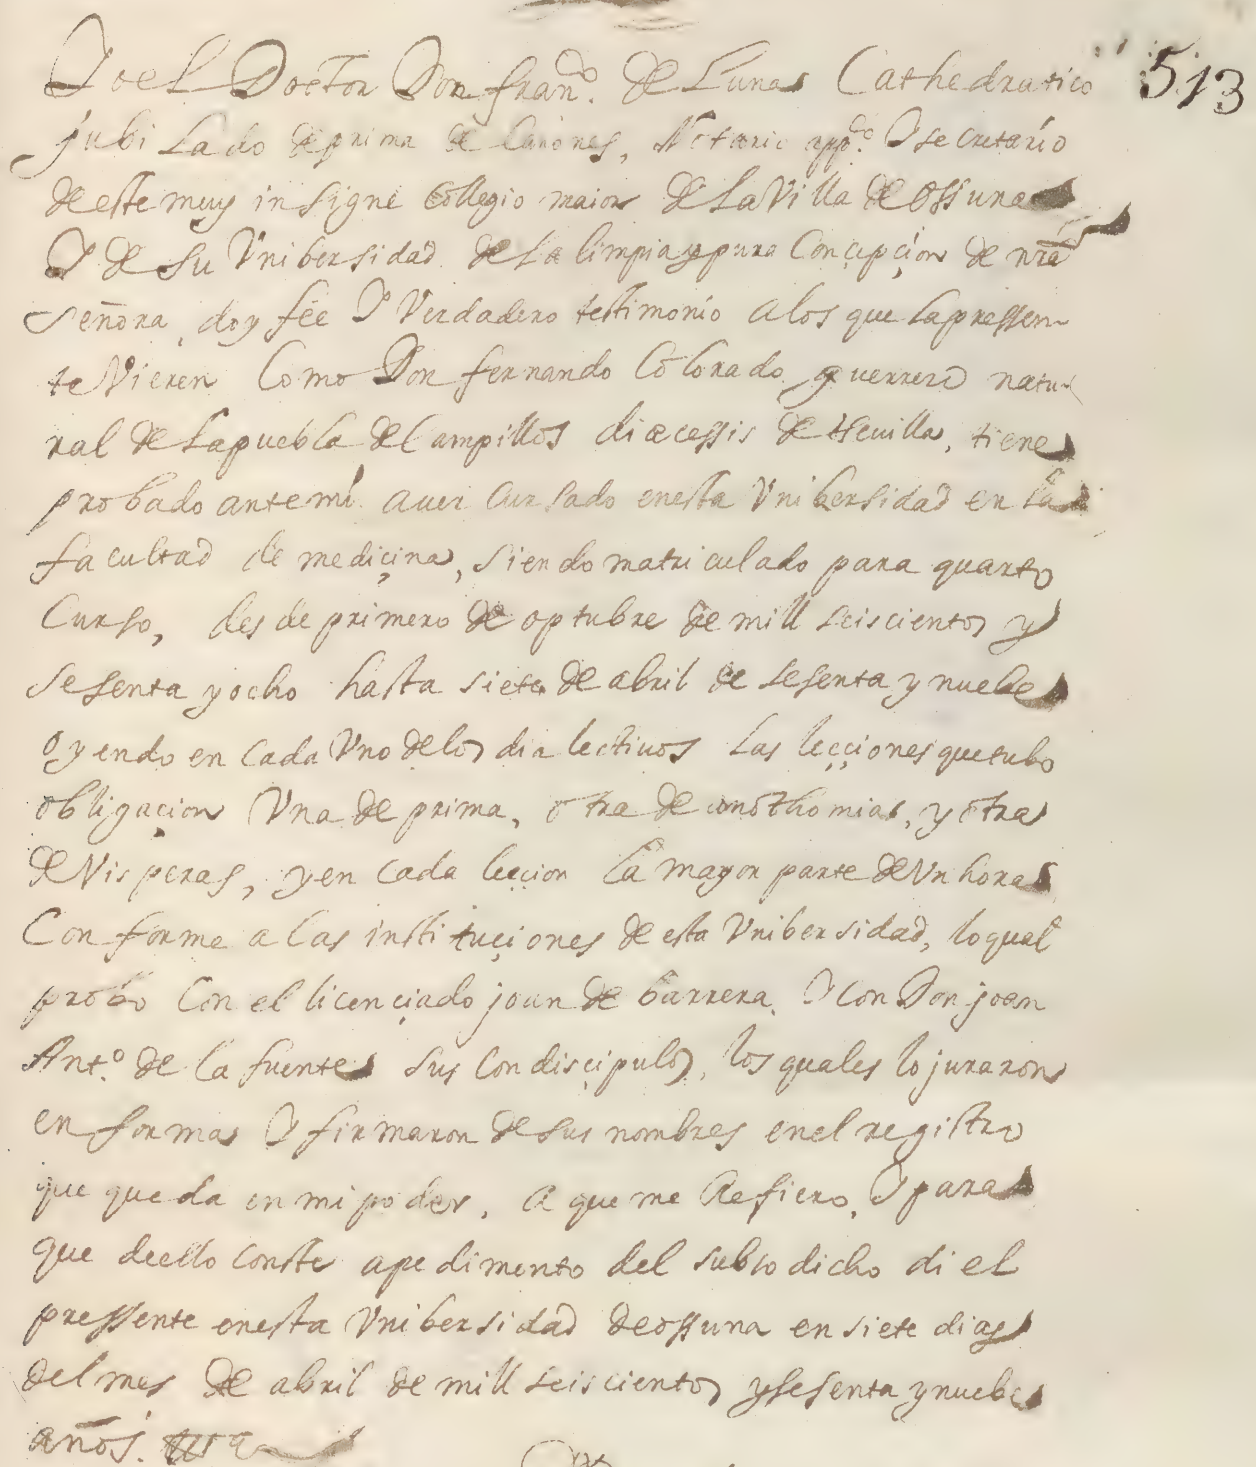 Yo el Doctor Don fran.co de Luna Cathedratico 513
jubilado de prima de Canones, Notario app.co Y secretario
de este muy insigne Collegio maior de la Villa de Ossuna
Y de su Vnibersidad de la limpia y pura Conçepçion de nra
señora, doy fée Y Verdadero testimonio a los que la pressen-
te Vieren Como Don fernando Colorado guerrero natu-
ral de la puebla de Campillos diœcessis de Seuilla, tiene
probado ante mi auer Cursado en esta Vnibersidad en la
facultad de mediçina, siendo matriculado para quarto
Curso, desde primero de optubre de mill seiscientos y
sesenta y ocho hasta siete de abril de sesenta y nuebe
oyendo en cada Vno de los dia lectiuos las lecçiones que tubo
obligaçion Vna de prima, otra de anothomia, y otra
de Visperas, y en cada lecçion la mayor parte de Vn hora
Conforme a las instituçiones de esta Vnibersidad, lo qual
probo Con el licençiado joan de barrera, Y con Don joan
Ant.o de la fuente sus Condisçipulos, los quales lo juraron
en forma Y firmaron de sus nombres en el registro
que queda en mi poder, a que me Refiero, Y para
que de ello conste a pedimento del subso dicho di el
pressente en esta Vnibersidad de ossuna en siete dias
del mes de abril de mill seiscientos y sesenta y nuebe
años.